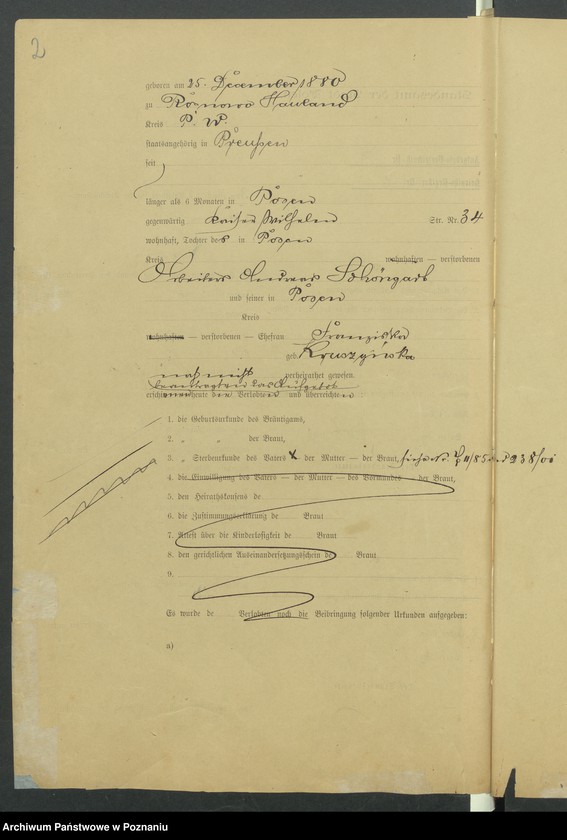 2
geboren am 25. Dezember 1880
zu Rožnowo Hauland
Kreis P. W.
staatsangehörig in Preußen
seit
länger als 6 Monaten in Posen
gegenwärtig Kaiser Wilhelm Str. Nr. 34
wohnhaft, Tochter des in Posen
Kreis wohnhaften — verstorbenen
Arbeiters Andreas Schöngart
und seiner in Posen
Kreis
wohnhaften — verstorbenen — Ehefrau Franziska
geb. Kruszyńska
noch nicht verheirathet gewesen.
beantragten das Aufgebot
erschienen heute die Verlobten und überreichten:
1. die Geburtsurkunde des Bräutigams,
2. „ „ der Braut,
3. „ Sterbeurkunde des Vaters x der Mutter — der Braut, 4/85 238/01
4. die Einwilligung des Vaters — der Mutter — des Vormundes — der Braut,
5. den Heirathskonsens de
6. die Zustimmungserklärung de Braut
7. Attest über die Kinderlosigkeit de Braut
8. den gerichtlichen Auseinandersetzungsschein de Braut
9.
Es wurde de Verlobten noch die Beibringung folgender Urkunden aufgegeben:
a)
Archiwum Państwowe w Poznaniu